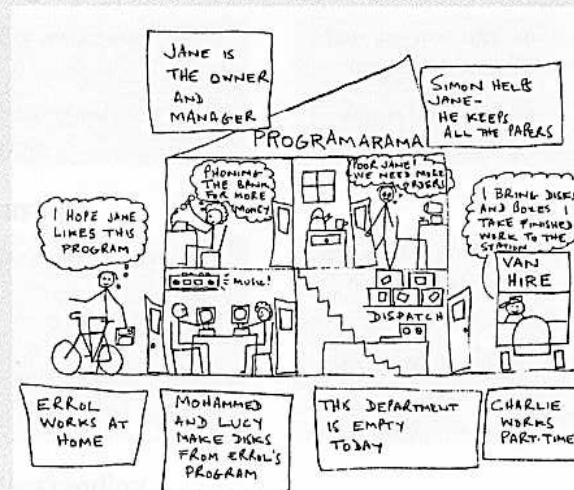 JANE IS
THE OWNER
AND
MANAGER
SIMON HELPS
JANE-
HE KEEPS
ALL THE PAPERS
PROGRAMARAMA
PHONING
THE BANK
FOR MORE
MONEY
POOR JANE!
WE NEED MORE
ORDERS
I HOPE JANE
LIKES THIS
PROGRAM
I BRING DISKS
AND BOXES. I
TAKE FINISHED
WORK TO THE
STATION
VAN
HIRE
MUSIC!
DISPATCH
ERROL
WORKS AT
HOME
MOHAMMED
AND LUCY
MAKE DISKS
FROM ERROL'S
PROGRAM
THIS DEPARTMENT
IS EMPTY
TODAY
CHARLIE
WORKS
PART-TIME